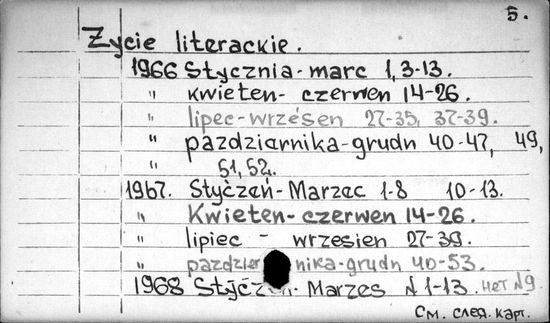 5.
Życie literackie.
1966 Stycznia-marc 1, 3-13.
" kwieten- czerwen 14-26.
" lipec-wrzésen 27-35, 37-39.
" pazdziernika-grudn 40-47, 49,
" 51, 52.
1967. Styčzeń-Marzec 1-8 10-13.
" Kwieten-czerwen 14-26.
" lipiec - wrzesien 27-39.
" pazdzier nika-grudn 40-53.
1968 Styčz n- Marzes N 1-13. нет N9.
См. след. карт.